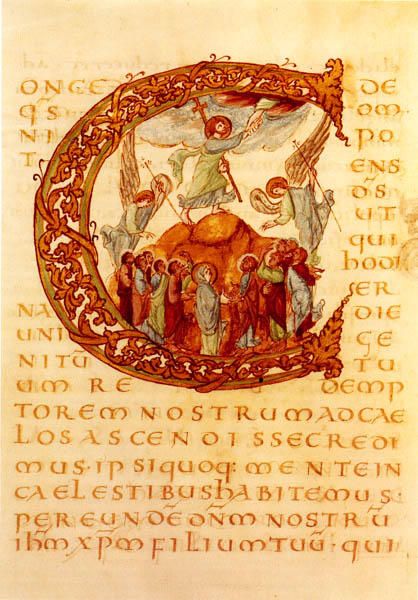 CONCE DE
QS̄ OM
NI PO
T ENS
DS̄
UT
QUI
hODI
ER
NA DIE
UNI GE
NITŪ TU
UM RE DEMP
TOREM NOSTRUM AD CAE
LOS ASCENDISSE CREDI
MUS · IPSI QUOQ: MENTE IN
CAELESTIBUS hABITEMUS:
PER EUNDĒ DN̄M NOSTRŪ
IhM̄ XPM̄ FILIUM TUŪ · QUI